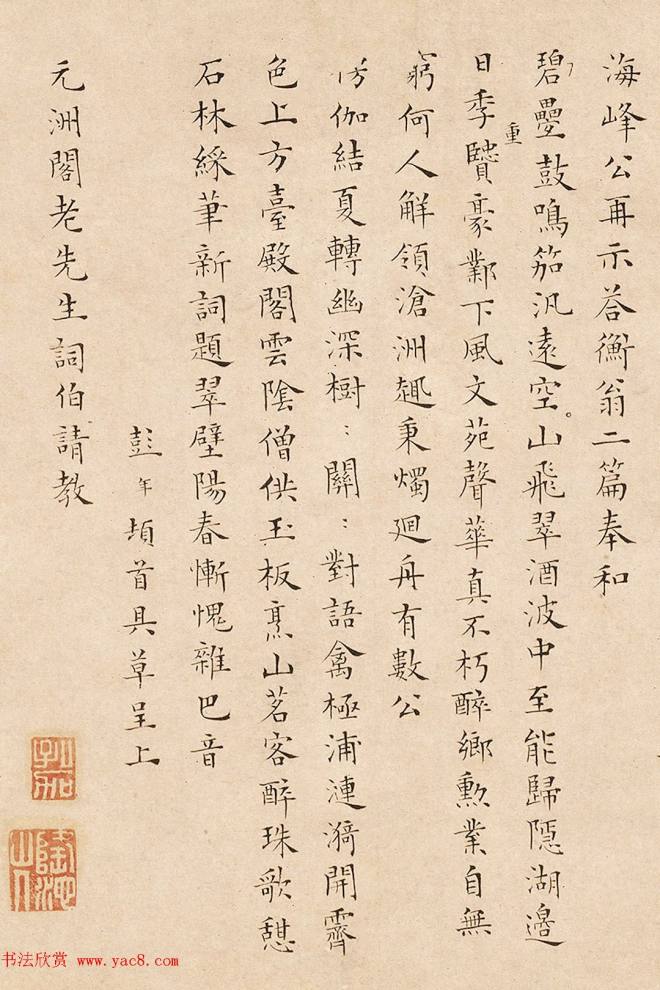 海峰公再示荅衡翁二篇奉和
碧疊鼓鳴笳汎遠空山飛翠洒波中至能歸隱湖邊
日季贒豪鄴下風文苑聲華真不朽醉鄉勲業自無
重
窮何人解領滄洲趣秉燭迴舟有數公
伽結夏轉幽深樹：關：對語禽極浦漣漪開霽
色上方臺殿閣雲陰僧供玉板烹山茗客醉珠歌憇
石林綵筆新詞題翠壁陽春慚愧雜巴音
彭年頓首具草呈上
元洲閣老先生詞伯請教
書法欣赏 www.yac8.com